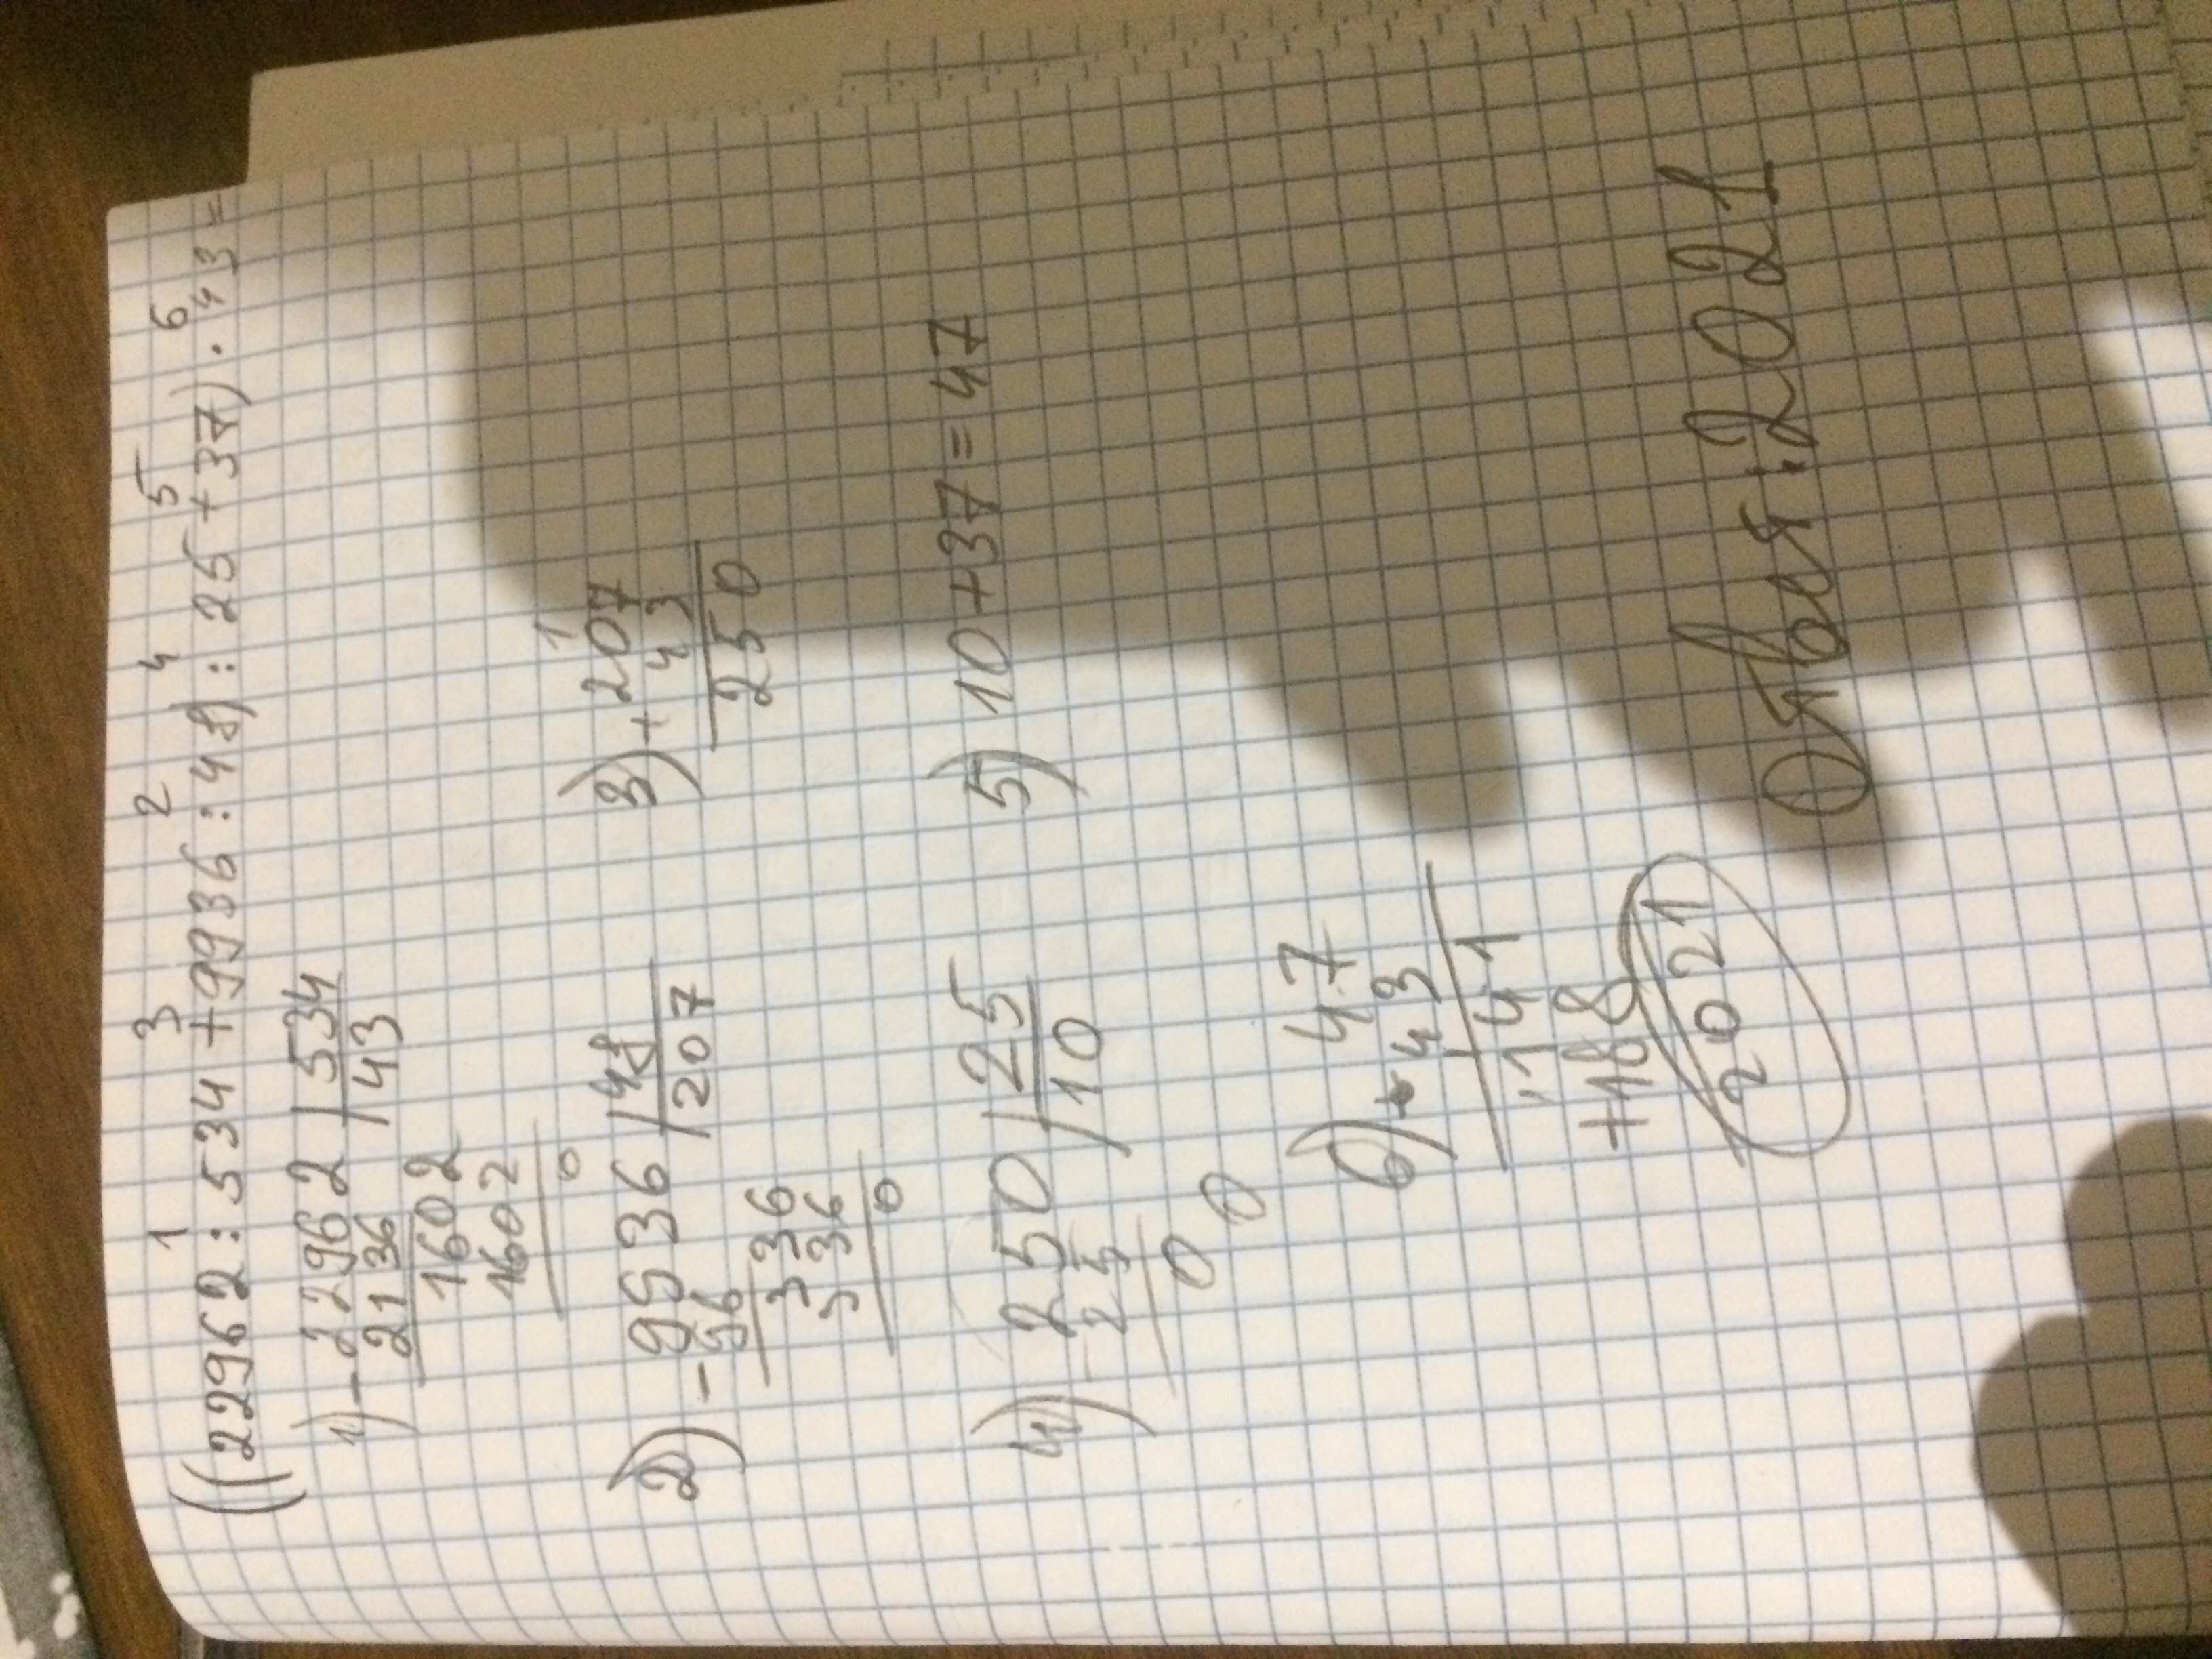 1 3 2 4 5 6
((22962:534+9936:48):25+37)·43=
1) -22962 |534
2136 43
1602
1602
0
2) -9936 |48
96 207
336
336
0
3) 1
+207
43
250
4) 250 |25
25 10
0 0
5) 10+37=47
6) ·47
43
141
+188
2021
Ответ:2021